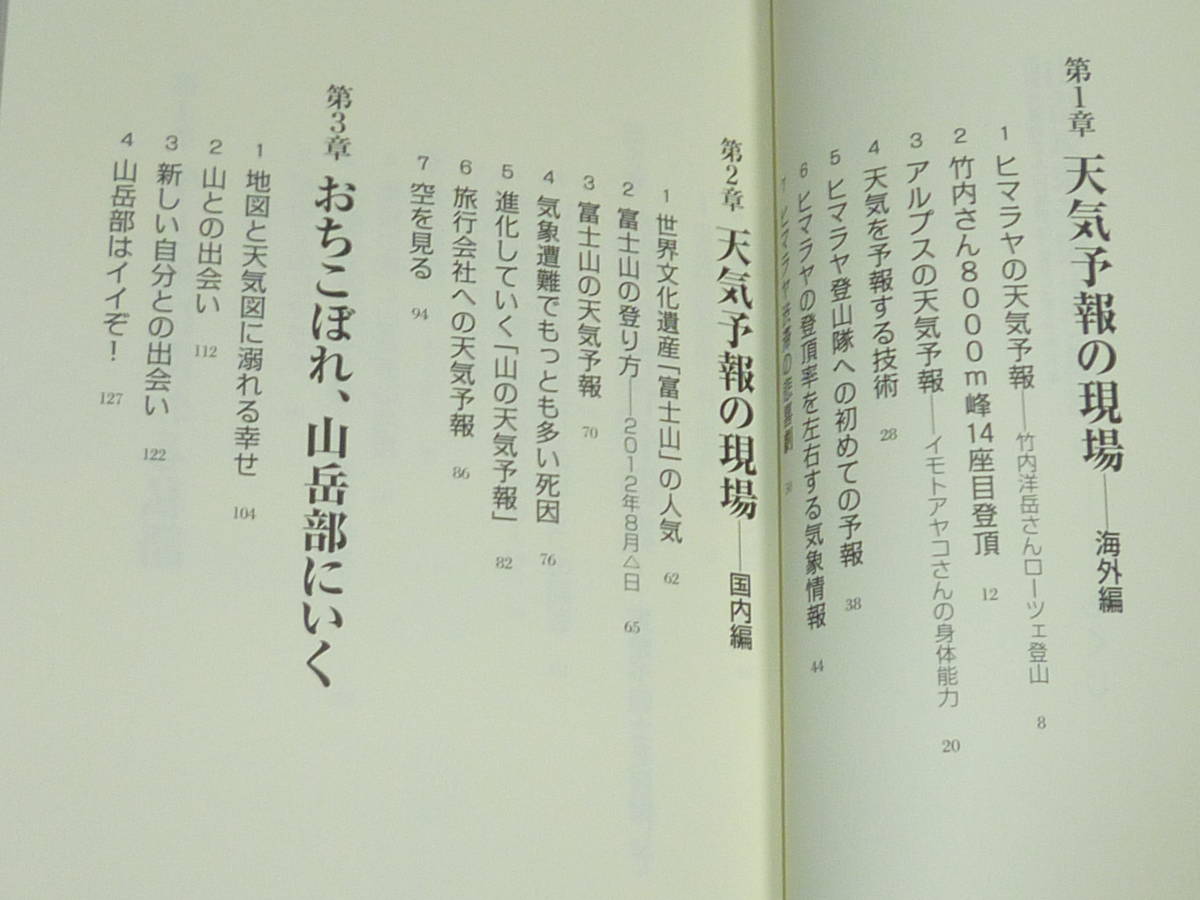 第1章 天気予報の現場――海外編
1 ヒマラヤの天気予報――竹内洋岳さんローツェ登山 8
2 竹内さん8000m峰14座目登頂 12
3 アルプスの天気予報――イモトアヤコさんの身体能力 20
4 天気を予報する技術 28
5 ヒマラヤ登山隊への初めての予報 38
6 ヒマラヤの登頂率を左右する気象情報 44
7 ヒマラヤ
第2章 天気予報の現場――国内編
1 世界文化遺産「富士山」の人気 62
2 富士山の登り方――2012年8月△日 65
3 富士山の天気予報 70
4 気象遭難でもっとも多い死因 76
5 進化していく「山の天気予報」 82
6 旅行会社への天気予報 86
7 空を見る 94
第3章 おちこぼれ、山岳部にいく
1 地図と天気図に溺れる幸せ 104
2 山との出会い 112
3 新しい自分との出会い 122
4 山岳部はイイぞ! 127